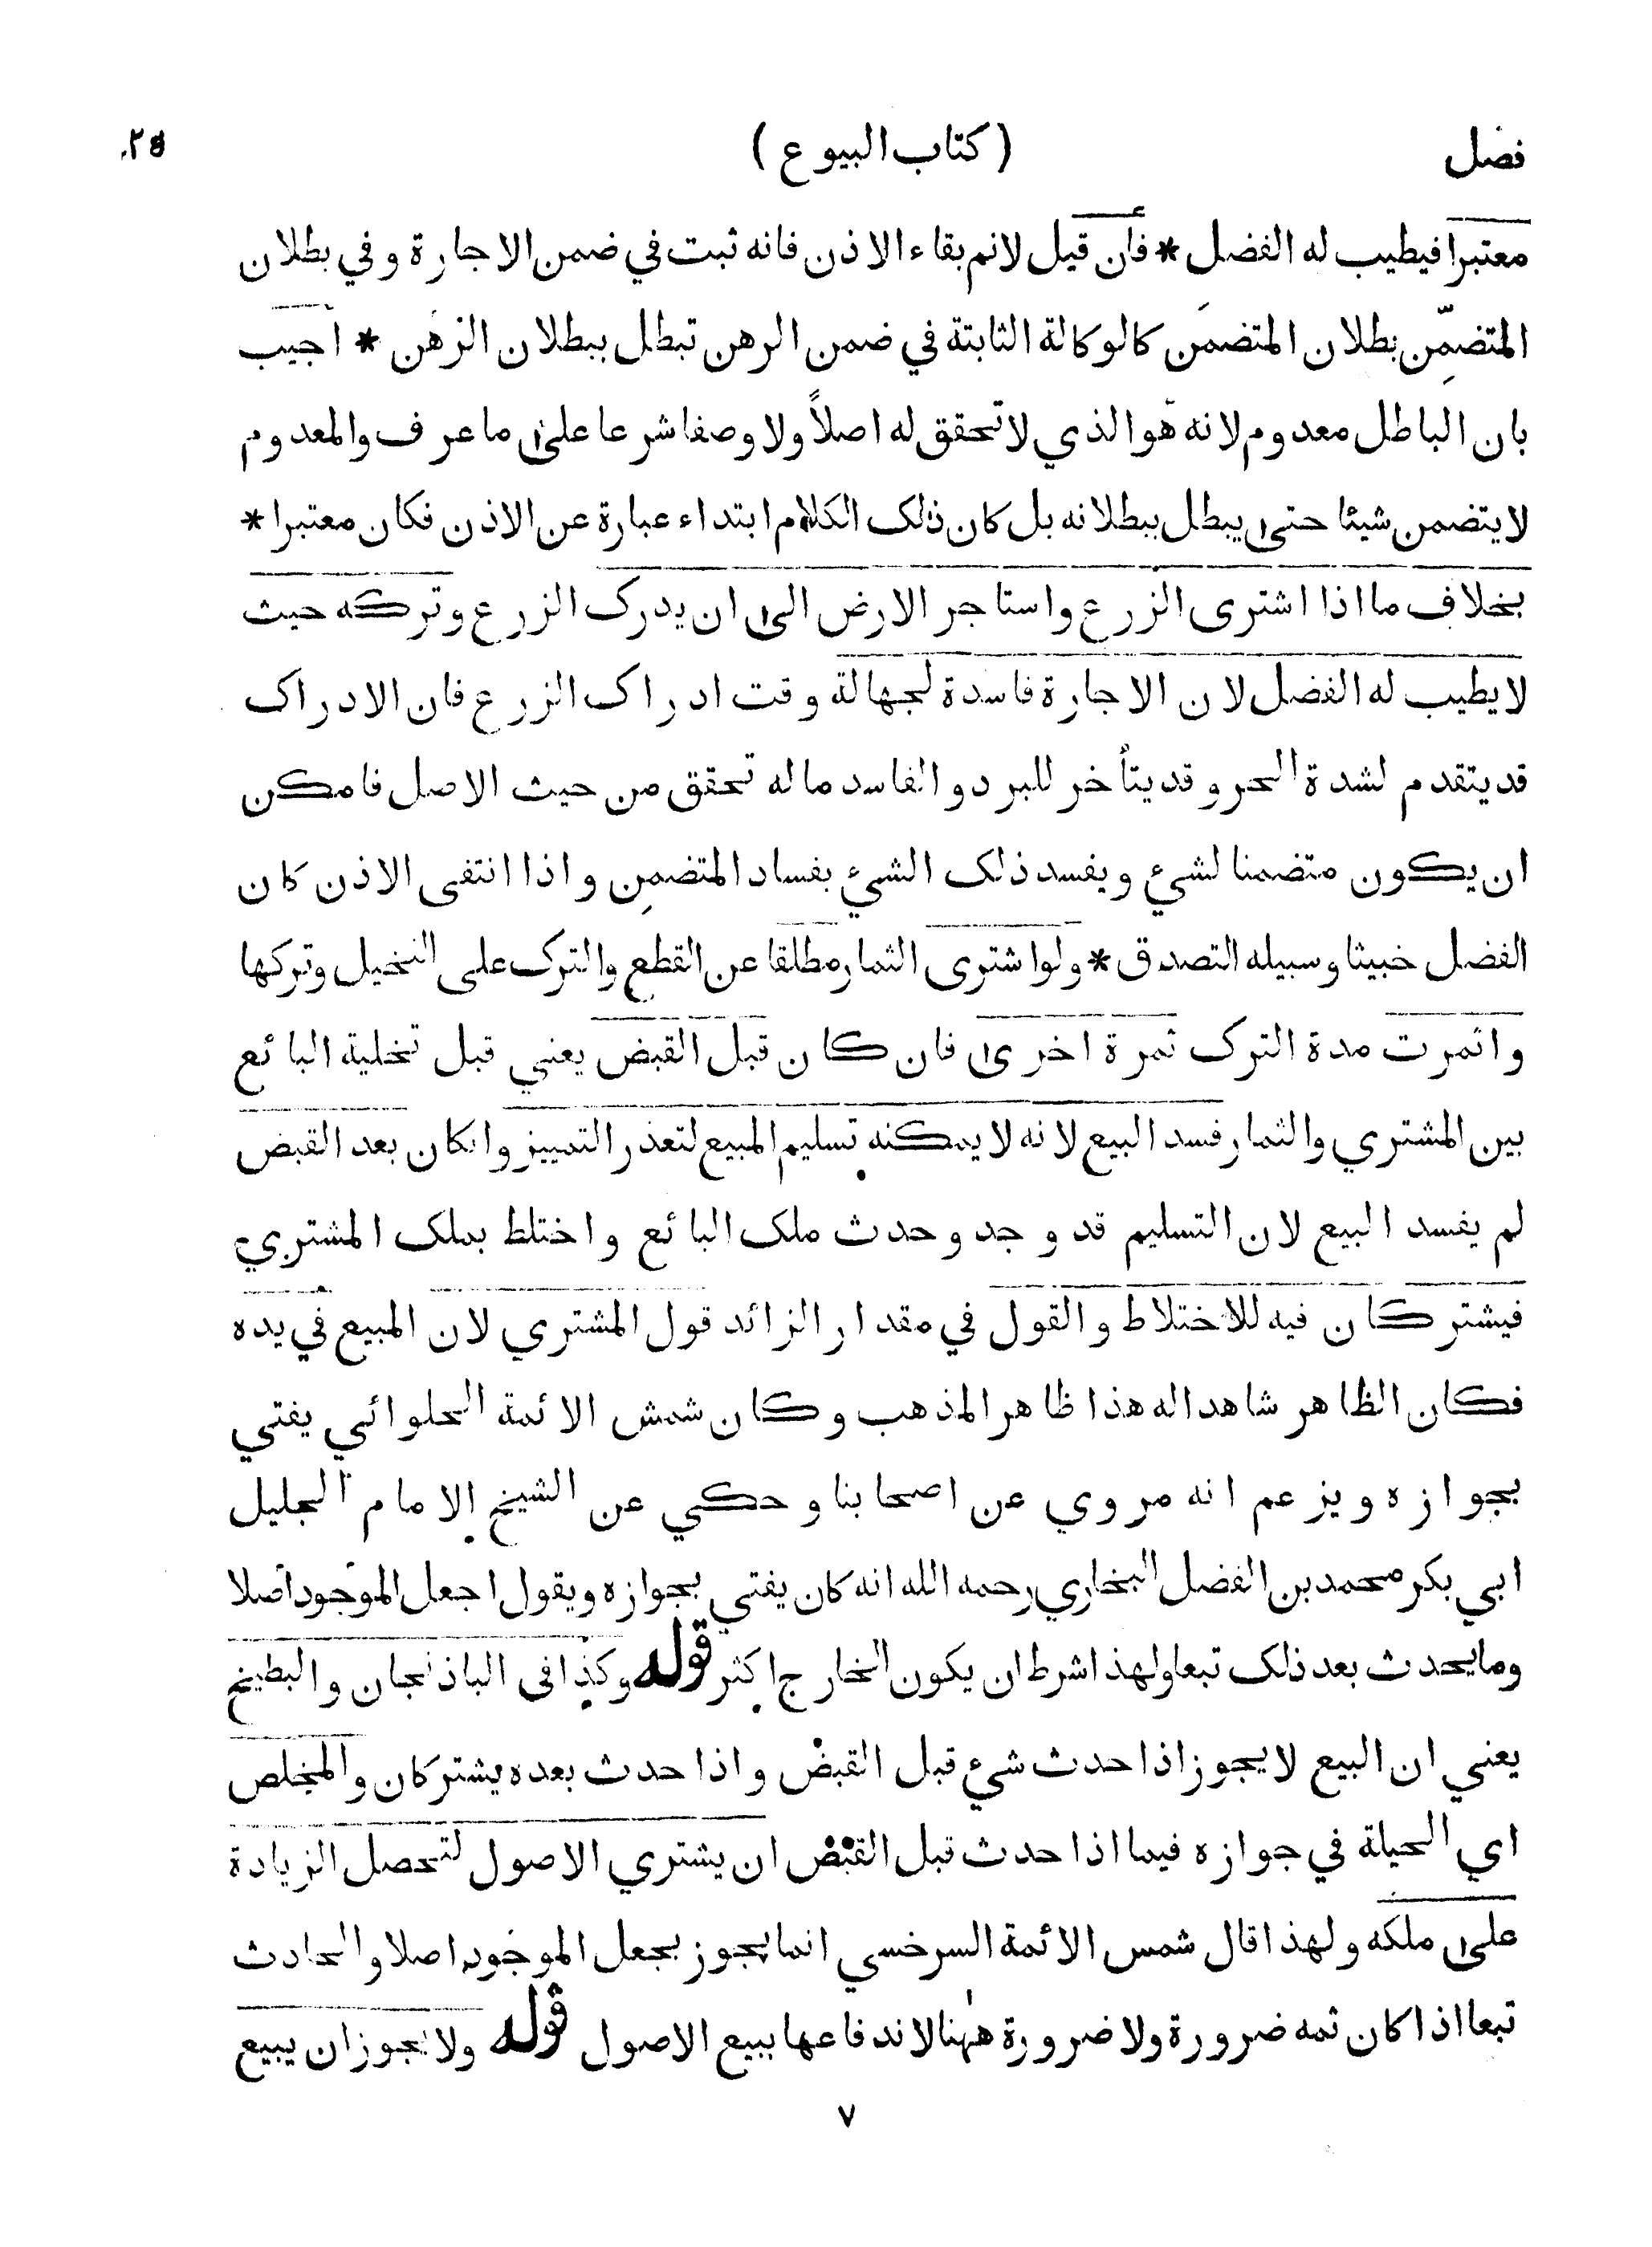 فصل ( كتاب البيوع ) ٢٥
معتبرا فيطيب له الفضل * فان قيل لانم بقاء الاذن فانه ثبت في ضمن الاجارة وفي بطلان
المتضمِّن بطلان المتضمَن كالوكالة الثابتة في ضمن الرهن تبطل ببطلان الرهن * اجيب
بان الباطل معدوم لانه هو الذي لا تحقق له اصلاً ولا وصفا شرعا علىٰ ما عرف والمعدوم
لا يتضمن شيئا حتىٰ يبطل ببطلانه بل كان ذلك الكلام ابتداء عبارة عن الاذن فكان معتبرا *
بخلاف ما اذا اشترى الزرع واستاجر الارض الىٰ ان يدرك الزرع وتركه حيث
لا يطيب له الفضل لان الاجارة فاسدة لجهالة وقت ادراك الزرع فان الادراك
قد يتقدم لشدة الحر وقد يتأخر للبرد والفاسد ما له تحقق من حيث الاصل فامكن
ان يكون متضمنا لشيء ويفسد ذلك الشيء بفساد المتضمِن واذا انتفى الاذن كان
الفضل خبيثا وسبيله التصدق * ولو اشترى الثمار مطلقا عن القطع والترك على النخيل وتركها
واثمرت مدة الترك ثمرة اخرىٰ فان كان قبل القبض يعني قبل تخلية البائع
بين المشتري والثمار فسد البيع لانه لا يمكنه تسليم المبيع لتعذر التمييز وانكان بعد القبض
لم يفسد البيع لان التسليم قد وجد وحدث ملك البائع واختلط بملك المشتري
فيشتركان فيه للاختلاط والقول في مقدار الزائد قول المشتري لان المبيع في يده
فكان الظاهر شاهدا له هذا ظاهر المذهب وكان شمش الائمة الحلوائي يفتي
بجوازه ويزعم انه مروي عن اصحابنا وحكي عن الشيخ الامام الجليل
ابي بكر محمد بن الفضل البخاري رحمه الله انه كان يفتي بجوازه ويقول اجعل الموجود اصلا
وما يحدث بعد ذلك تبعا ولهذا شرط ان يكون الخارج اكثر قوله وكذا فى الباذنجان والبطيخ
يعني ان البيع لا يجوز اذا حدث شيء قبل القبض واذا حدث بعده يشتركان والمخلص
اي الحيلة في جوازه فيما اذا حدث قبل القبض ان يشتري الاصول لتحصل الزيادة
علىٰ ملكه ولهذا قال شمس الائمة السرخسي انما يجوز بجعل الموجود اصلا والحادث
تبعا اذا كان ثمه ضرورة ولا ضرورة ههنا لاندفاعها ببيع الاصول قوله ولا يجوز ان يبيع
٧